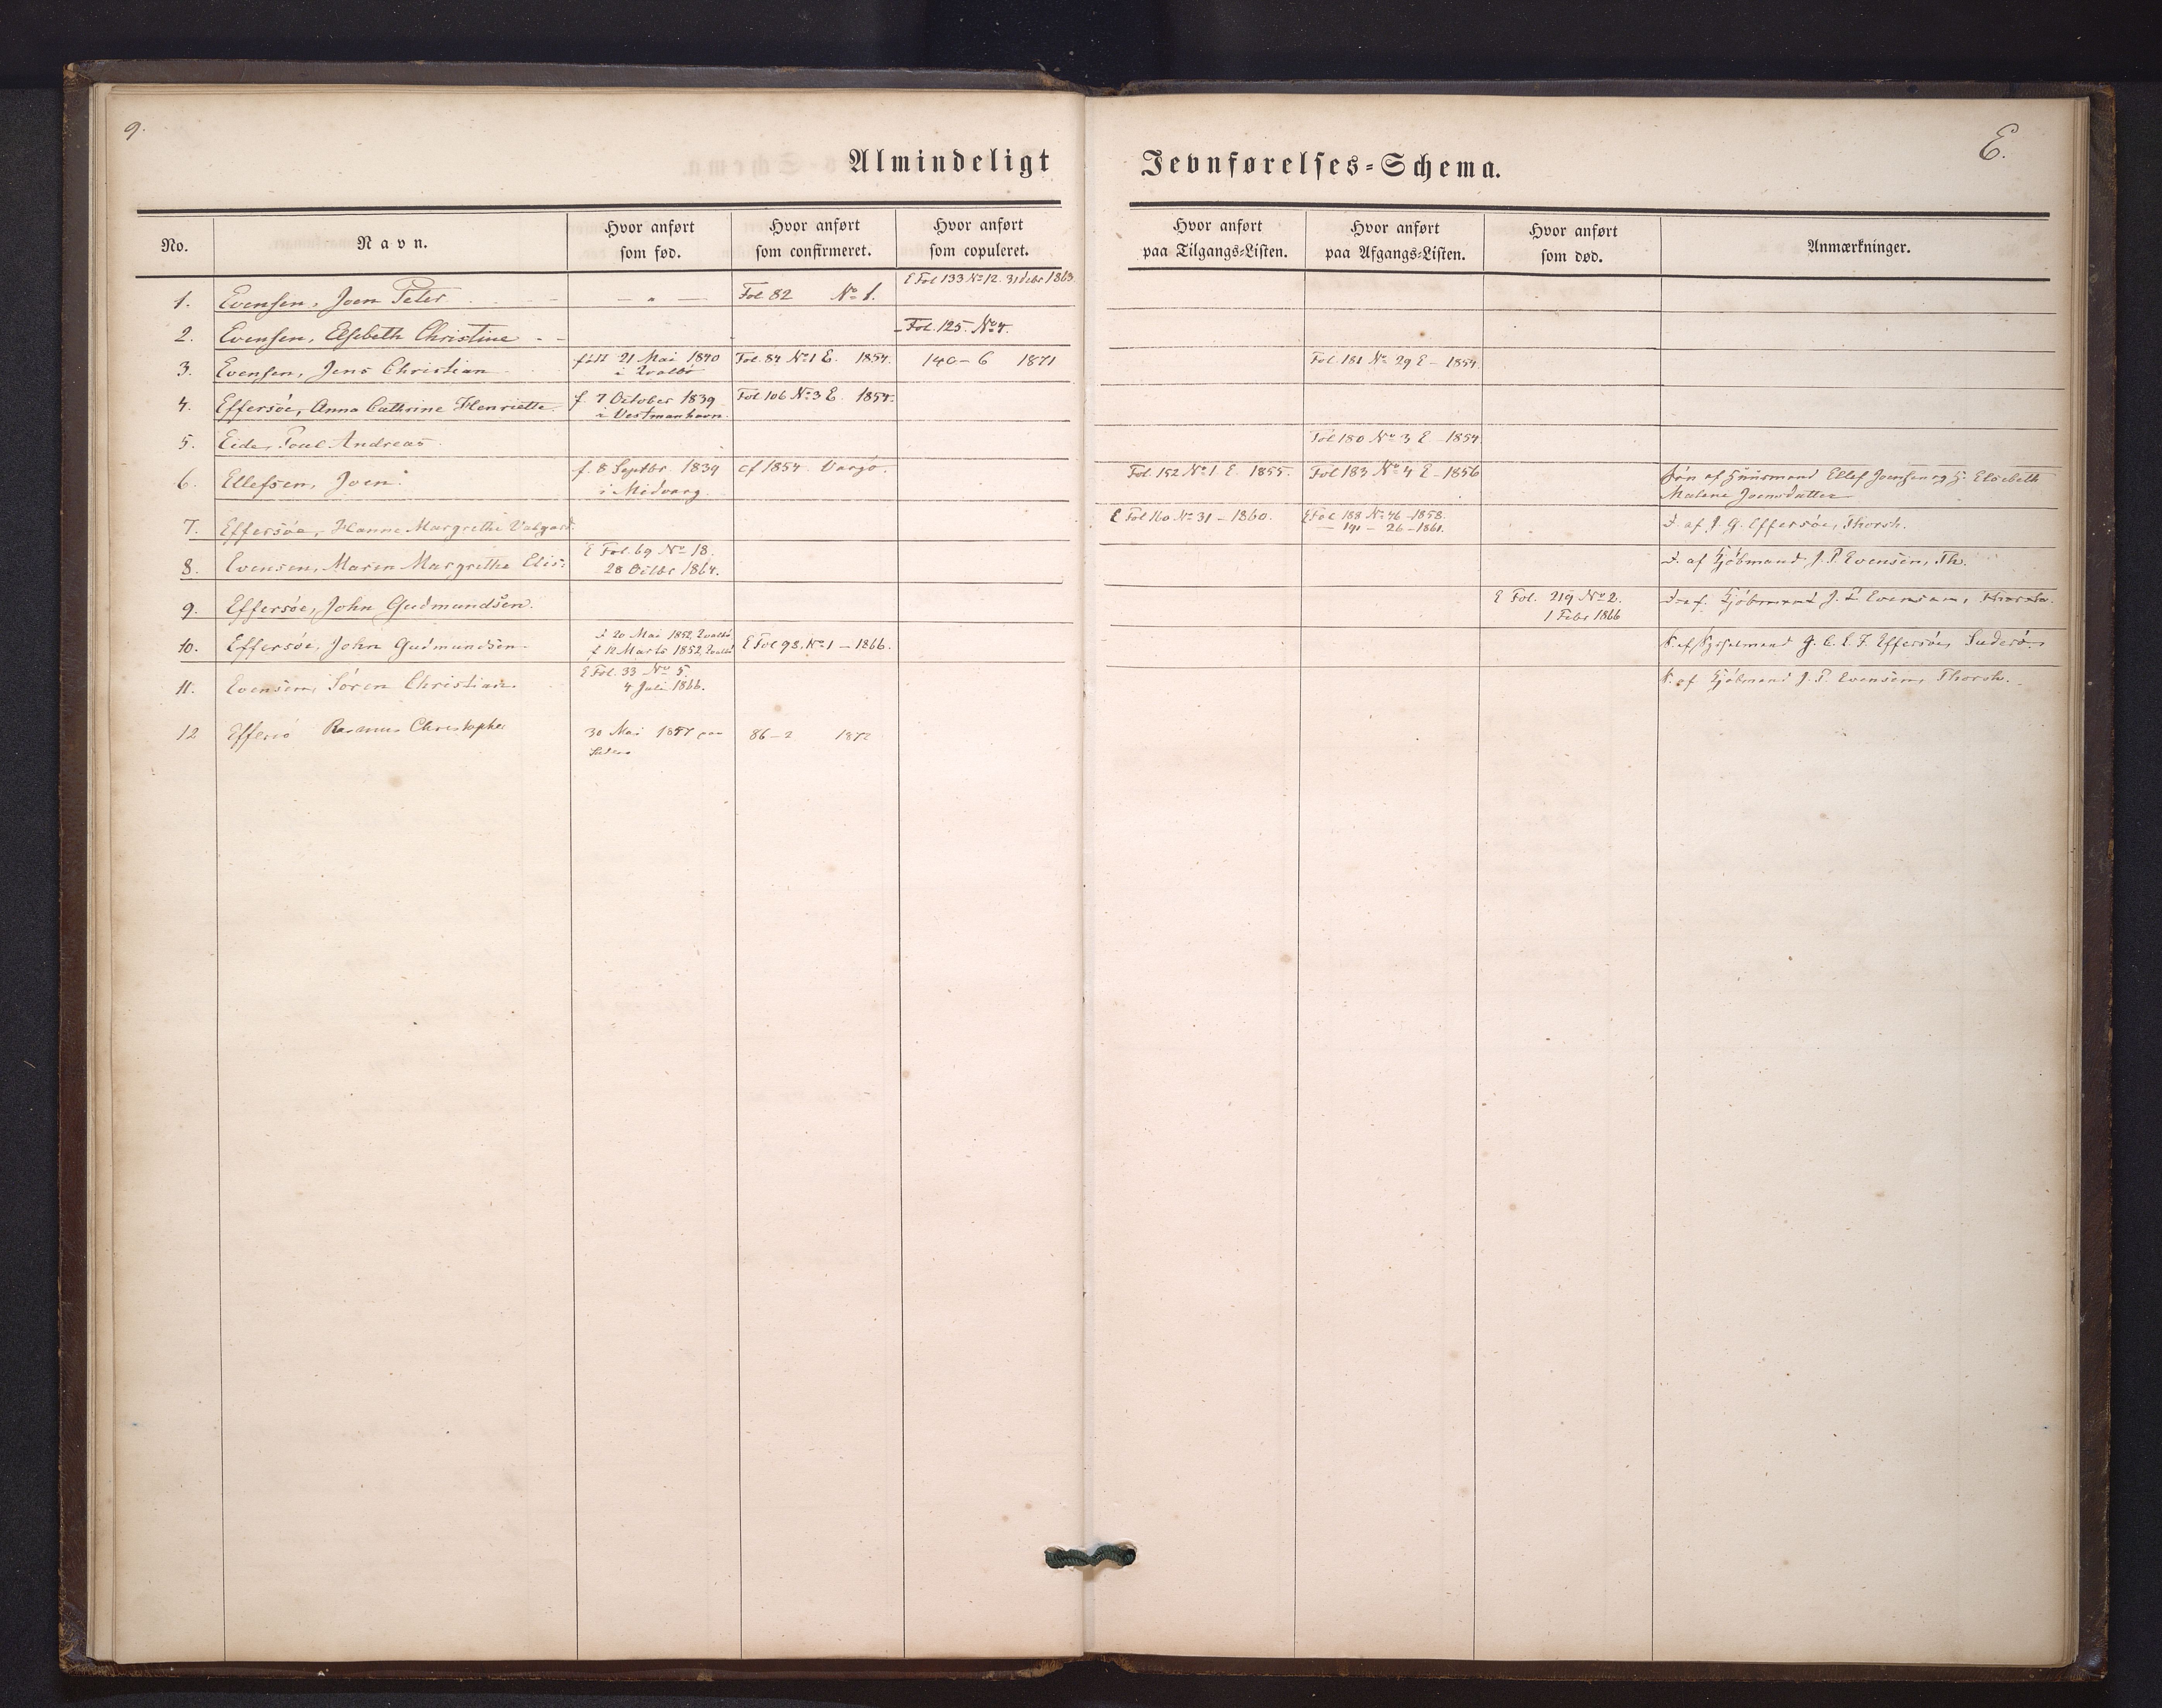 9.
E.
Almindeligt Jevnførelses=Schema.
No. Navn. Hvor anført som fød. Hvor anført som confirmeret. Hvor anført som copuleret. Hvor anført paa Tilgangs=Listen. Hvor anført paa Afgangs=Listen. Hvor anført som død. Anmærkninger.
1. Evensen, Joen Peter — „ — Fol 82 No 1. E Fol 133 No 12. 31 1863
2. Evensen, Elsebeth Christine - - Fol. 125. No 4.
3. Evensen, Jens Christian 21 Mai 1840 Fol. 84 No 1 E. 1854. 140 - 6 1871 Fol. 181 No 29 E - 1854
i Qvalbö
4. Effersöe, Anna Cathrine Henriette f. 7 October 1839 Fol 106 No 3 E. 1854.
i Vestmanhavn.
5. Eide, Poul Andreas Fol 180 No 3 E - 1854
6. Ellefsen, Joen. f. 8 Septbr. 1839 cf 1854 Vaagö. Fol. 152 No 1. E. 1855. Fol 183 No 4 E - 1856 Sön af Huusmand Ellef Joensen og H. Elsebeth
i Midvaag. Malene Joensdatter
7. Effersöe, Hanne Margrethe E Fol 160 No 31 - 1860. E Fol 188 No 46 - 1858. D. af J. G. Effersöe, Thorsh.
— 191 - 26 - 1861.
8. Evensen, Maren Margrethe Elis: E Fol. 69 No 18. D. af Kjöbmand J. P. Evensen, Th.
28 Octbr 1864.
9. Effersöe, John Gudmundsen. E Fol. 219 No 2. D. af Kjöbmand J. P. Evensen, Thorsh.
1 Febr 1866
10. Effersöe, John Gudmundsen. 20 Mai 1852, Qvalbö E Fol 98. No 1 - 1866. S. af Sysselmand G. C. E. F. Effersöe, Suderö.
f 12 Marts 1852, Qvalbö
11. Evensen, Sören Christian. E Fol. 33 No 5. S. af Kjöbmand J. P. Evensen, Thorsh.
4 Juli 1866.
12 Effersö Rasmus Christopher 30 Mai 1857 paa 86 - 2 1872
Suderö